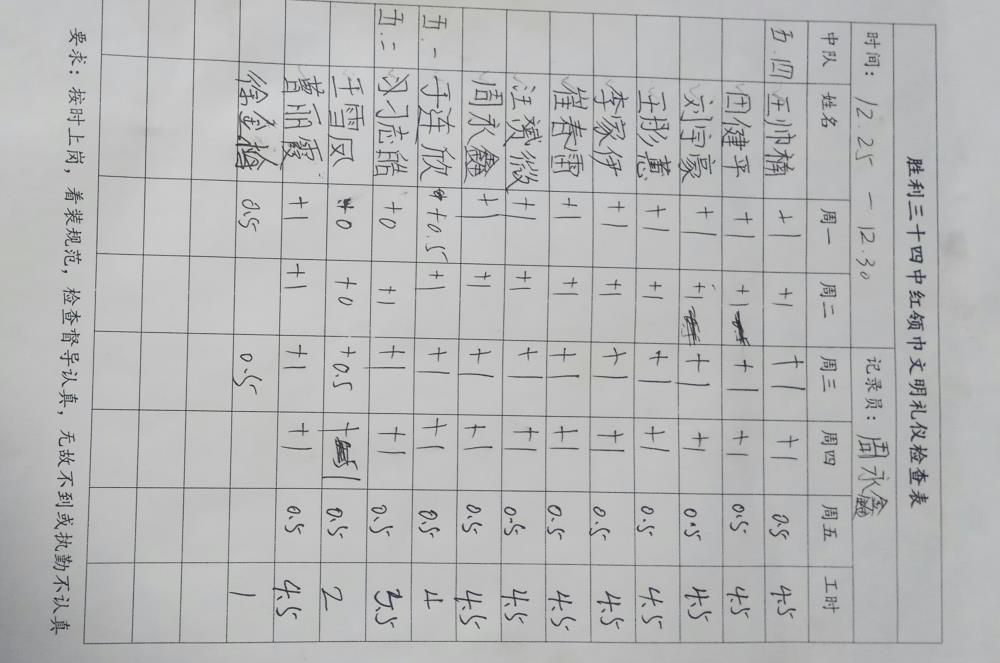 胜利三十四中红领巾文明礼仪检查表
时间: 12.25 — 12.30 记录员: 周永鑫
中队 姓名 周一 周二 周三 周四 周五 工时
五.四 王帅楠 +1 +1 +1 +1 0.5 4.5
田健平 +1 +1 +1 +1 0.5 4.5
刘宇豪 +1 +1 +1 +1 0.5 4.5
王彤慧 +1 +1 +1 +1 0.5 4.5
李家伊 +1 +1 +1 +1 0.5 4.5
崔春雷 +1 +1 +1 +1 0.5 4.5
汪赟微 +1 +1 +1 +1 0.5 4.5
周永鑫 +1 +1 +1 +1 0.5 4.5
五.一 于连欣 +0.5 +1 +1 +1 0.5 4
五.二 刁志皓 +0 +1 +1 +1 0.5 3.5
王雪凤 +0 +0 +0.5 +1 0.5 2
曹丽霞 +1 +1 +1 +1 0.5 4.5
徐金 0.5 0.5 1
要求: 按时上岗, 着装规范, 检查督导认真, 无故不到或执勤不认真